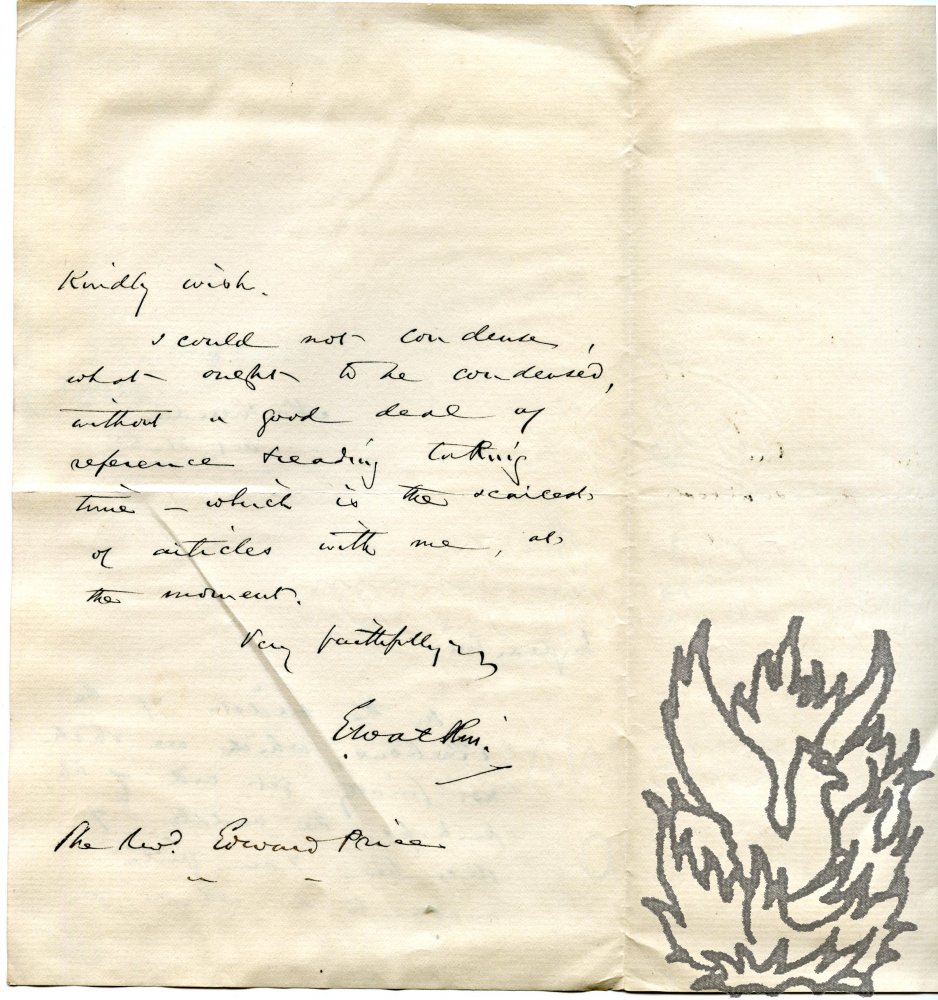 Kindly wish.
I could not condense,
what ought to be condensed,
without a good deal of
reference & reading taking
time – which is the scarcest
of articles with me, at
the moment.
Very faithfully
E. Watkin.
The Revd. Edward Price